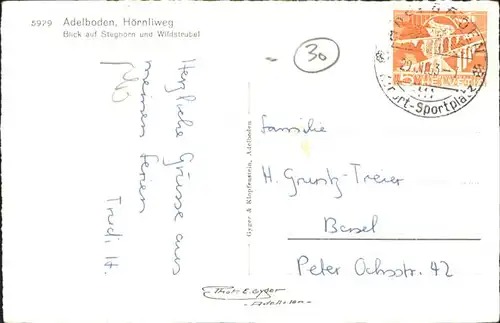 5979 Adelboden, Hörnliweg
Blick auf Steghorn und Wildstrubel
30
Herzliche Grüsse aus
meinen Ferien
Trudi H.
Gyger & Klopfenstein, Adelboden
ADELBODEN
HELVETIA
Kurort-Sportplatz
Familie
H. Gruntz-Treier
Basel
Peter Ochsstr. 42
Phot. E. Gyger
Adelboden